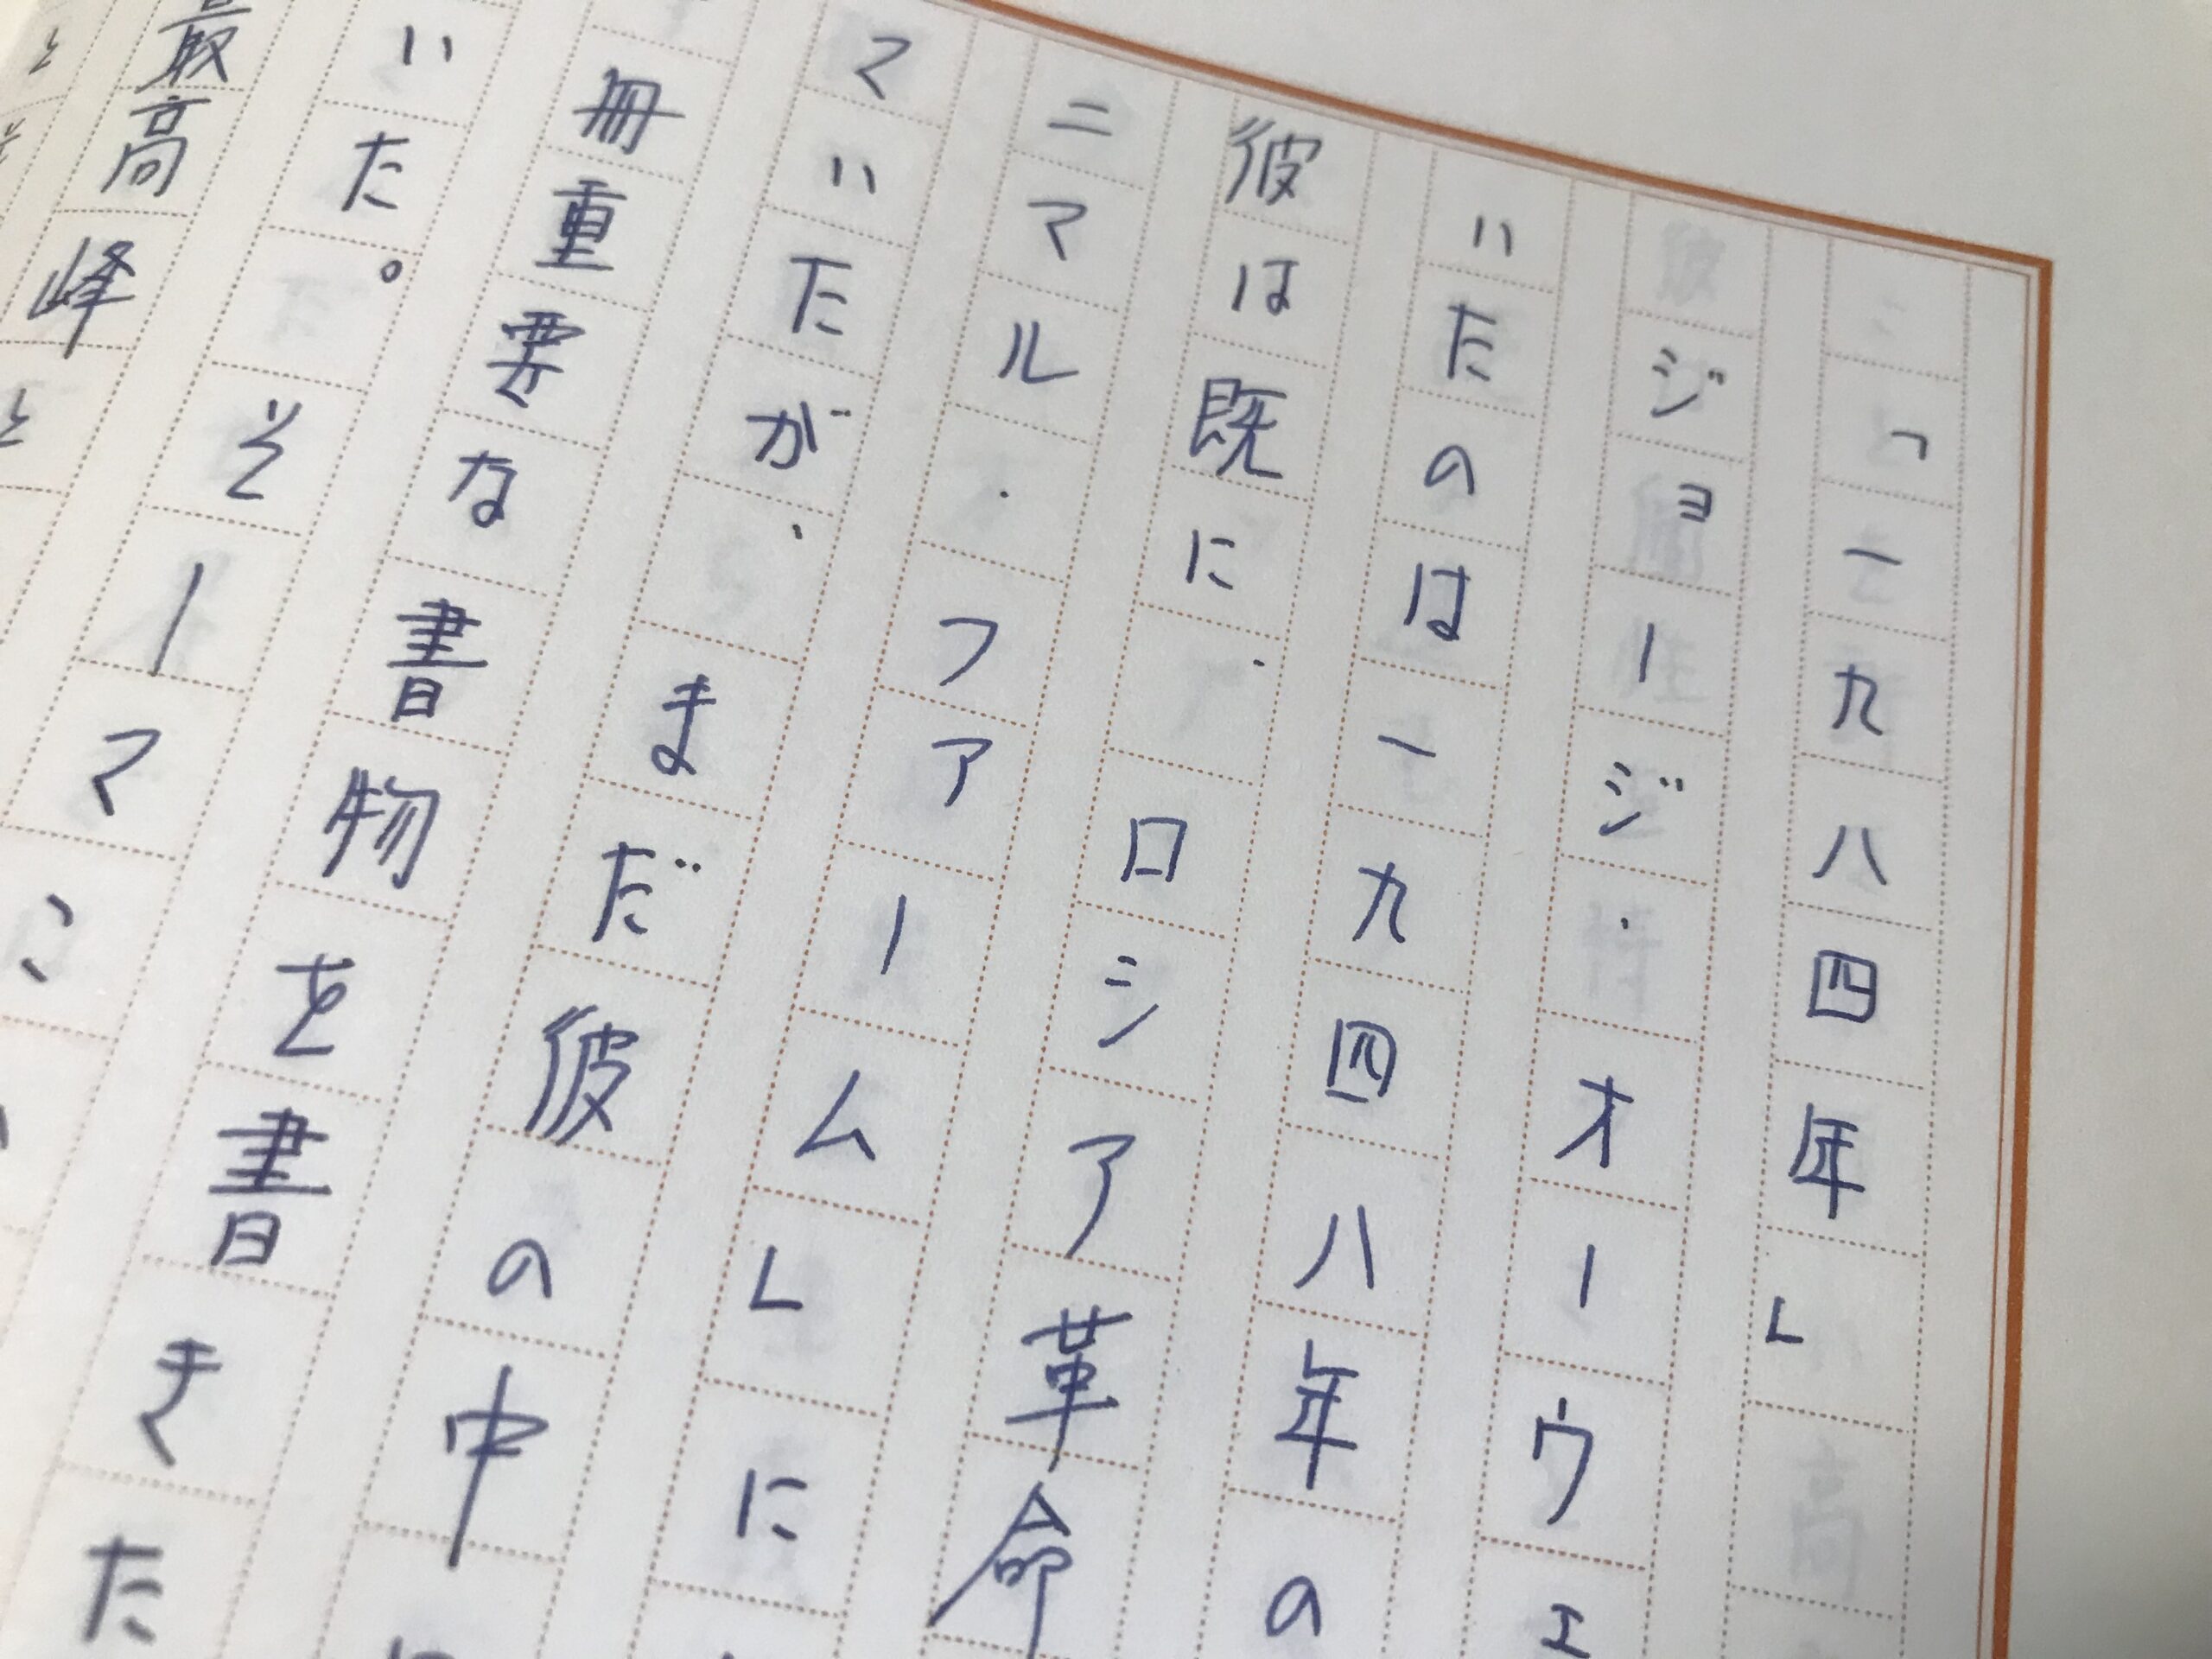 「一九八四年」
ジョージ・オーウェ
いたのは一九四八年の
彼は既に、ロシア革命
ニマル・ファーム」に
ていたが、まだ彼の中
冊重要な書物を書きた
いた。そーマこ
最高峰と